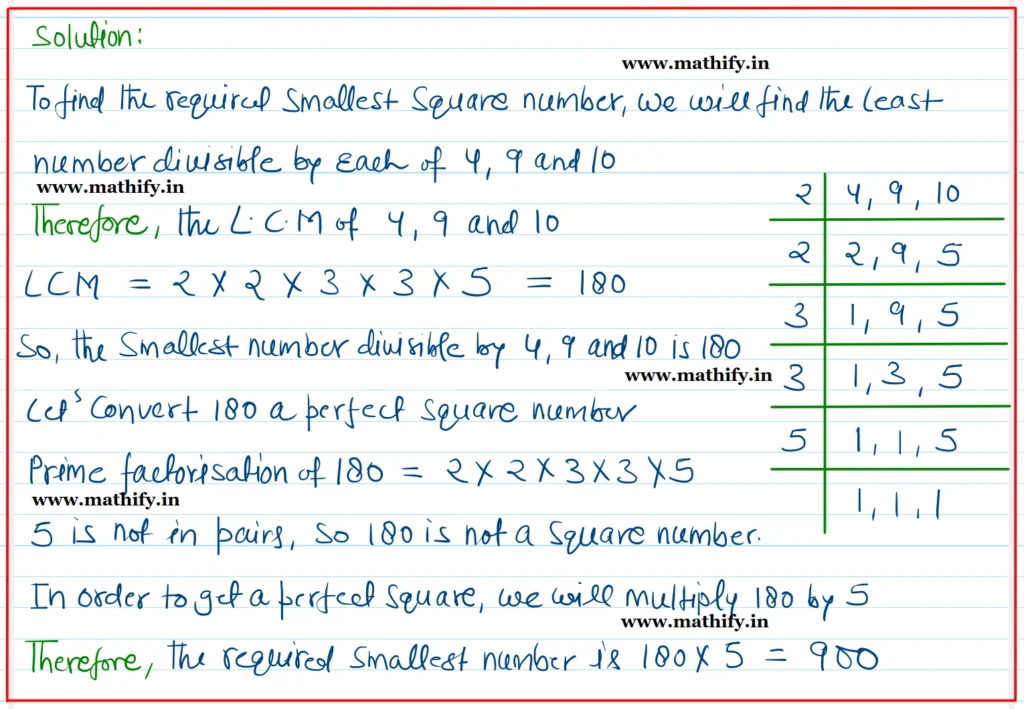 Solution:
www.mathify.in
To find the required smallest square number, we will find the least
number divisible by each of 4, 9 and 10
www.mathify.in
Therefore, the L.C.M of 4, 9 and 10
LCM = 2 X 2 X 3 X 3 X 5 = 180
So, the smallest number divisible by 4, 9 and 10 is 180
www.mathify.in
Let's Convert 180 a perfect square number
Prime factorisation of 180 = 2 X 2 X 3 X 3 X 5
www.mathify.in
5 is not in pairs, so 180 is not a square number.
In order to get a perfect square, we will multiply 180 by 5
www.mathify.in
Therefore, the required smallest number is 180 X 5 = 900
2 | 4, 9, 10
2 | 2, 9, 5
3 | 1, 9, 5
3 | 1, 3, 5
5 | 1, 1, 5
1, 1, 1